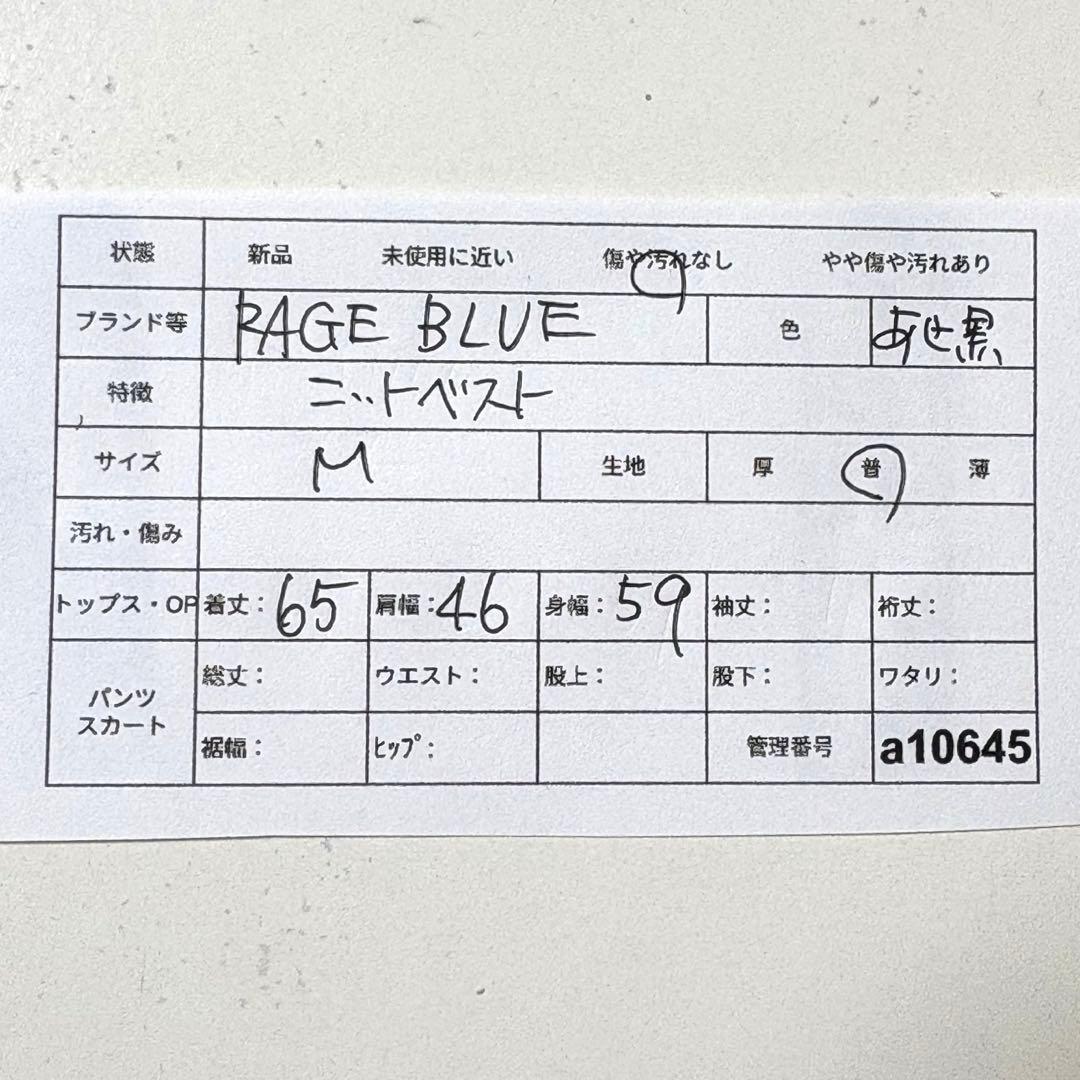 状態 新品 未使用に近い 傷や汚れなし やや傷や汚れあり
ブランド等 RAGE BLUE 色 あせ黒
特徴 ニットベスト
サイズ M 生地 厚 普 薄
汚れ・傷み
トップス・OP 着丈: 65 肩幅: 46 身幅: 59 袖丈: 裄丈:
パンツ スカート 総丈: ウエスト: 股上: 股下: ワタリ:
裾幅: ヒップ: 管理番号 a10645